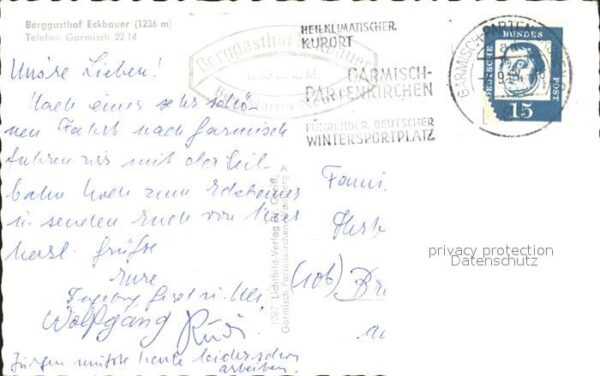 Berggasthof Eckbauer (1236 m)
Telefon Garmisch 22 14
HEILKLIMATISCHER
KURORT
GARMISCH-
PARTENKIRCHEN
FÜHRENDER DEUTSCHER
WINTERSPORTPLATZ
Berggasthof Eckbauer
GARMISCH-PARTENKIRCHEN
DEUTSCHE BUNDESPOST
15
Unsre Lieben!
Nach einer sehr schö-
nen Fahrt nach Garmisch
fuhren wir mit der Seil-
bahn hoch zum Eckbauer
u. senden Euch von hier
herzl. Grüße
Eure
Ingeborg
Wolfgang Rudi
Jürgen mußte heute leider schon
arbeiten.
1287 Lichtbild-Verlag
Garmisch-Partenkirchen
Fami
(10b)
privacy protection
Datenschutz